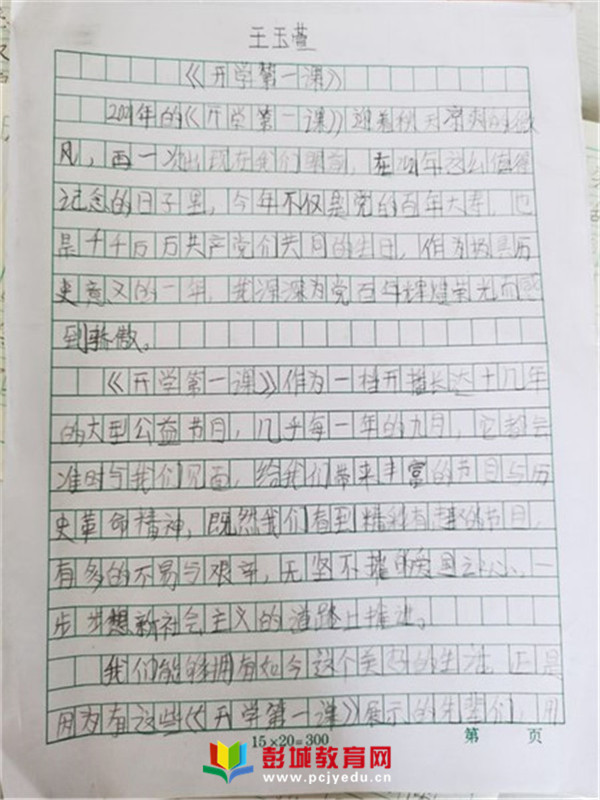 王玉萱
《开学第一课》
2021年的《开学第一课》迎着秋天凉爽的微
风，再一次出现在我们眼前，在2021年这么值得
记念的日子里，今年不仅是党的百年大寿，也
是千千万万共产党们共同的生日，作为极具历
史意义的一年，我深深为党百年辉煌荣光而感
到骄傲。
《开学第一课》作为一档开播长达十几年
的大型公益节目，几乎每一年的九月，它都会
准时与我们见面，给我们带来丰富的节目与历
史革命精神，既然我们看到精彩有趣的节目，
有多的不易与艰辛，无坚不摧的爱国之心，一
步步想新社会主义的道路上推进。
我们能够拥有如今这个美好的生活，正是
因为有这些《开学第一课》展示的先辈们，用
15×20=300
第 页
彭城教育网
www.pcjyedu.cn